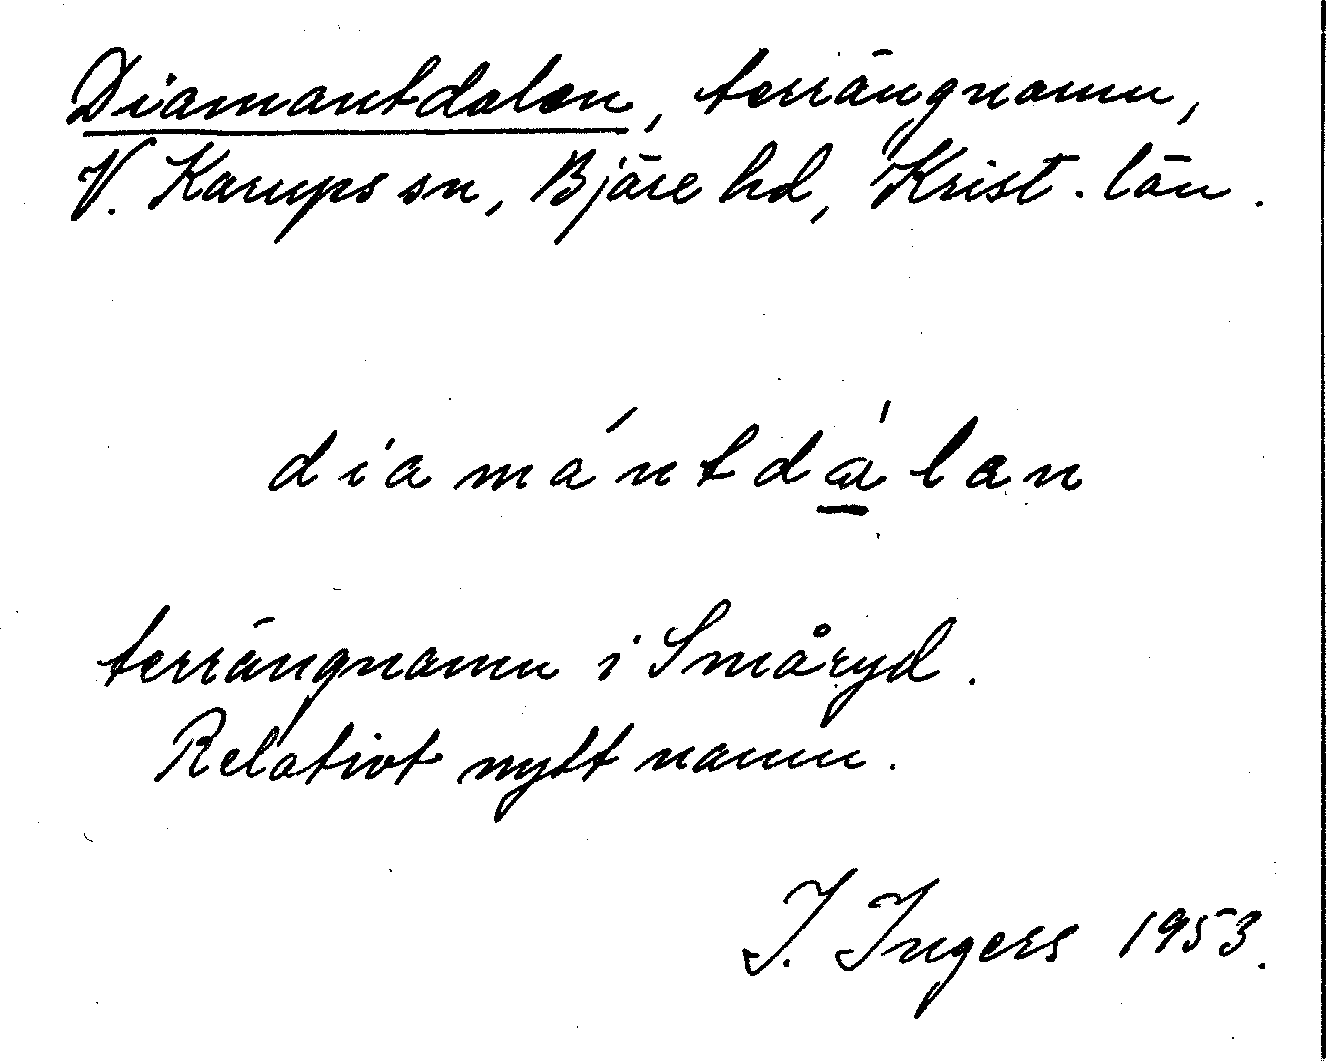 Diamantdalen, terrängnamn,
V. Karups sn, Bjäre hd, Krist. län.
diamántdàlan
terrängnamn i Småryd.
Relativt nytt namn.
I. Ingers 1953.